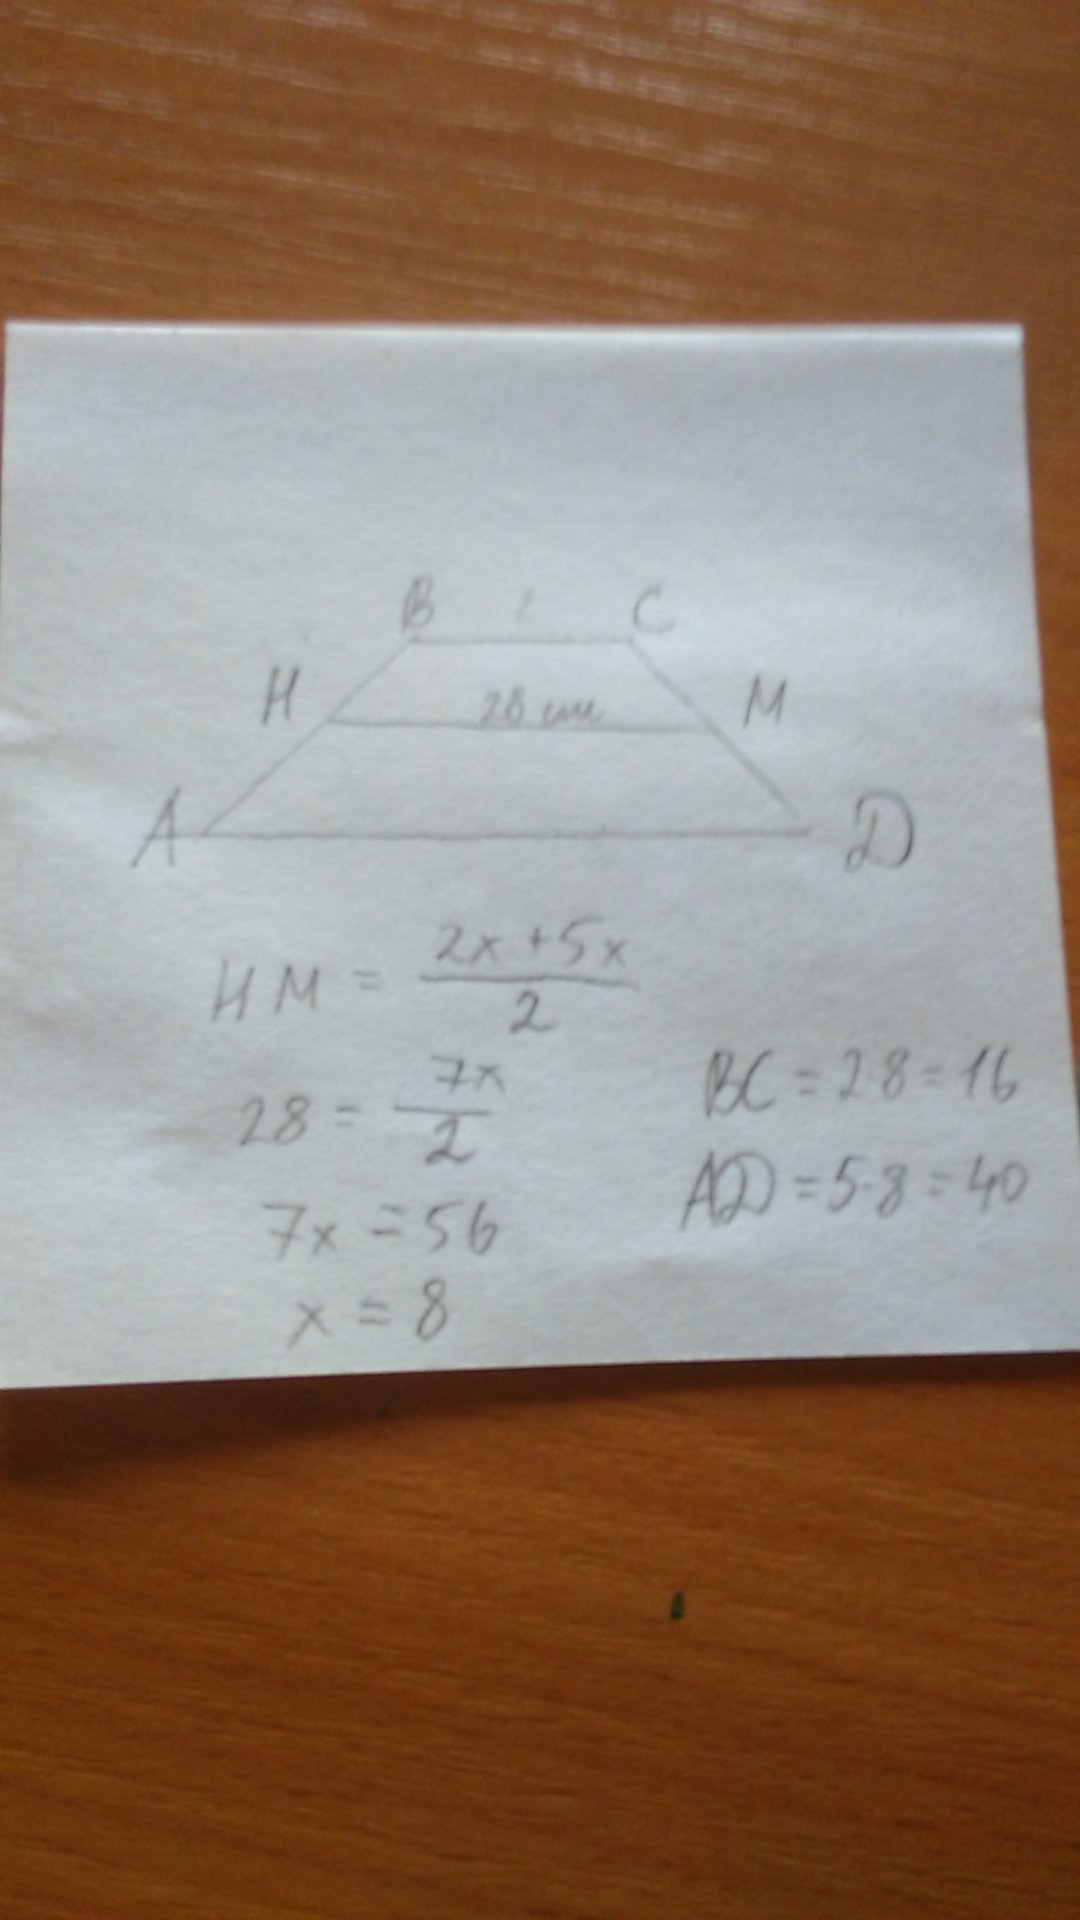 B ? C
H 28 см M
A D
HM = (2x + 5x)/2
28 = 7x/2
7x = 56
x = 8
BC = 2·8 = 16
AD = 5·8 = 40